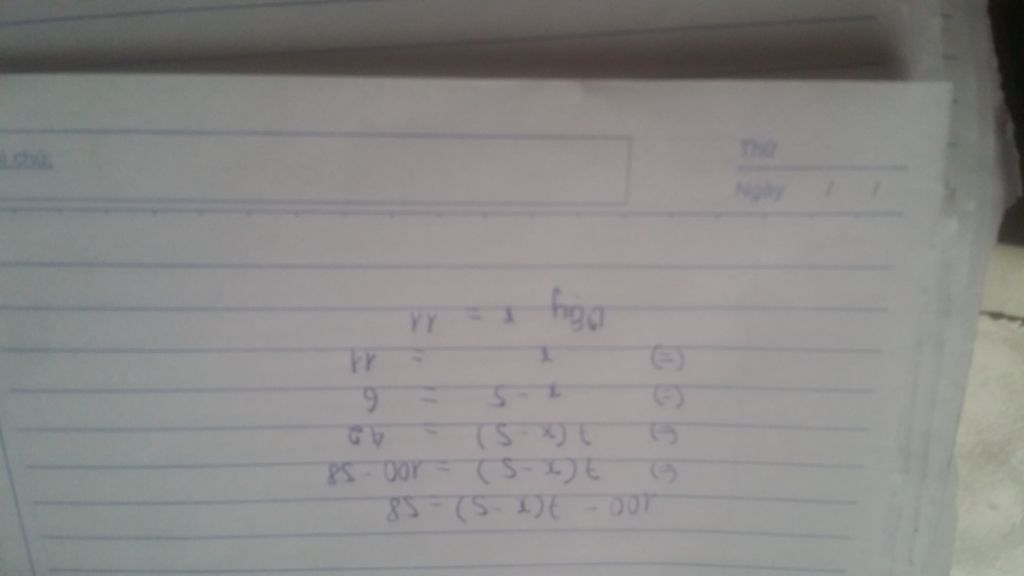 i chú:
Thứ
Ngày / /
100 - 7(x - 5) = 58
(=) 7(x - 5) = 100 - 58
(=) 7(x - 5) = 42
(=) x - 5 = 6
(=) x = 11
Vậy x = 11